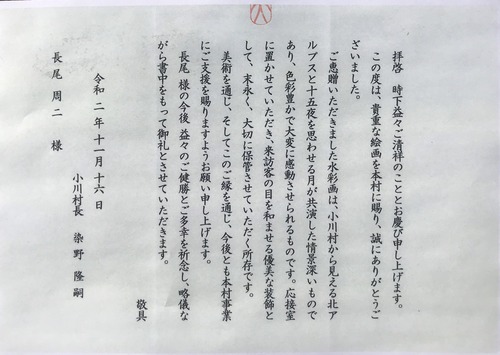 拝啓　時下益々ご清祥のこととお慶び申し上げます。
この度は、貴重な絵画を本村に賜り、誠にありがとうご
ざいました。
ご恵贈いただきました水彩画は、小川村から見える北ア
ルプスと十五夜を思わせる月が共演した情景深いもので
あり、色彩豊かで大変に感動させられるものです。応接室
に置かせていただき、来訪客の目を和ませる優美な装飾と
して、末永く、大切に保管させていただく所存です。
美術を通じ、そしてこのご縁を通じ、今後とも本村事業
にご支援を賜りますようお願い申し上げます。
長尾　様の今後　益々のご健勝とご多幸を祈念し、略儀な
がら書中をもって御礼とさせていただきます。
敬具
令和二年十一月十六日
小川村長　染野　隆嗣
長尾　周二　様